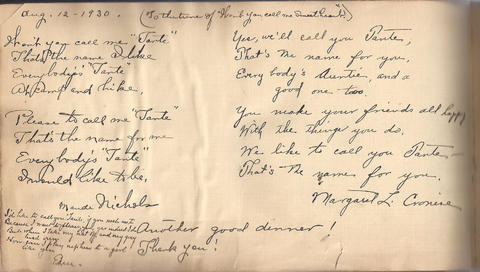 Aug. 12-1930.
(To the tune of "Won't you call me Sweetheart".)
Won't you call me "Tante"
That's the name I like
Everybody's "Tante"
At camp and hike.
Please to call me "Tante"
That's the name for me
Everybody's "Tante"
I would like to be.
Maude Nichols
Yes, we'll call you Tante,
That's the name for you,
Everybody's Auntie, and a
good one too.
You make your friends all happy
With the things you do.
We like to call you Tante—
That's the name for you.
Margaret L. Cronise
I'd like to call you Tante, if you were not
Because I
But when I take my hat off and my gray
hair
Now
like you
Another good dinner!
Thank you!